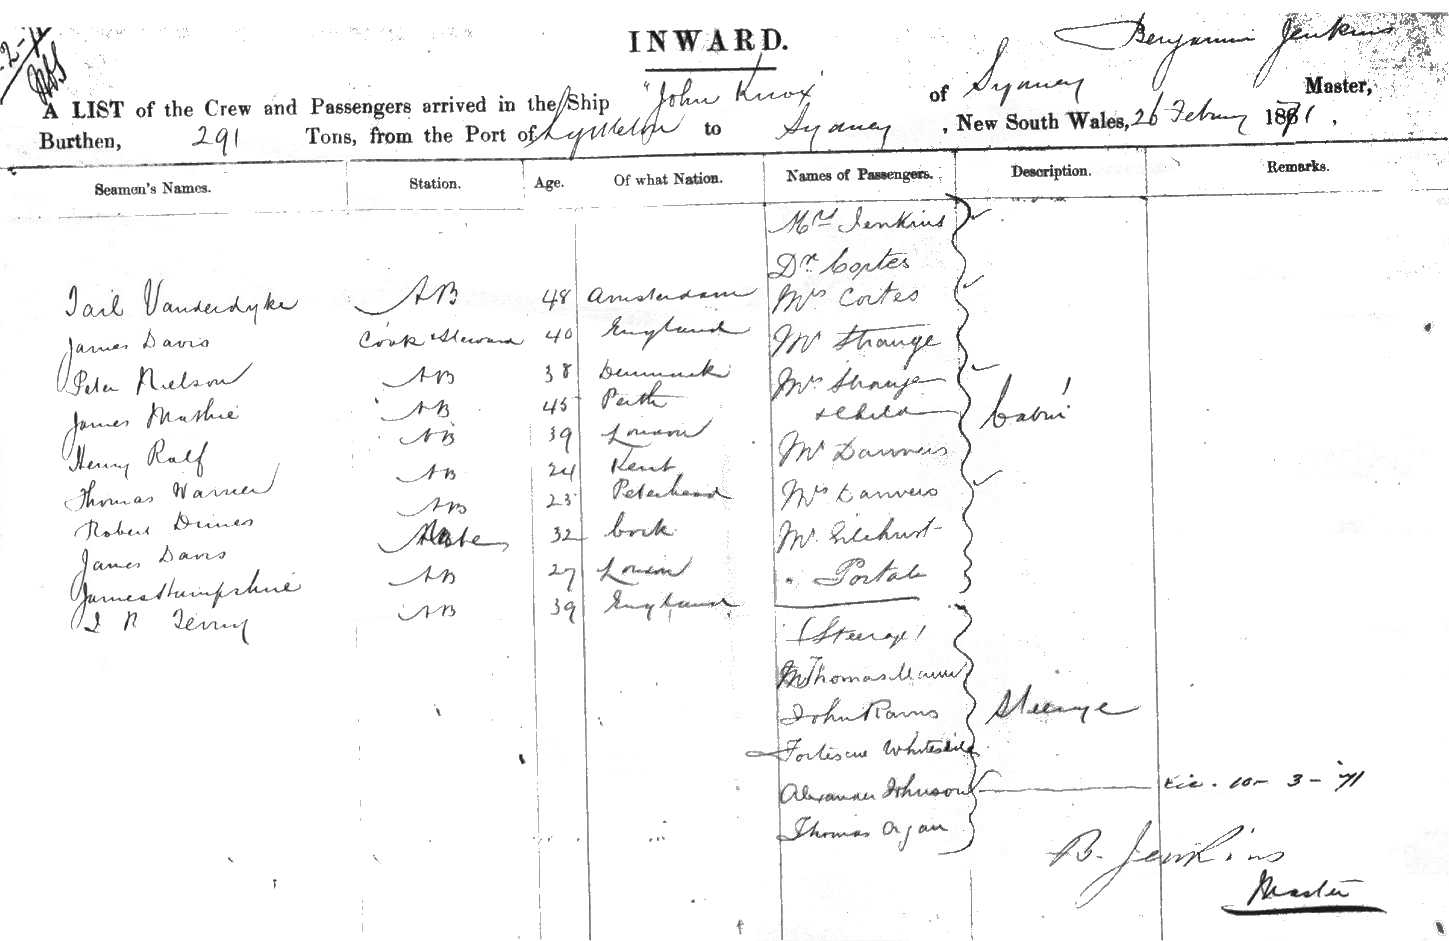 INWARD.
Benjamin Jenkins
A LIST of the Crew and Passengers arrived in the Ship "John Knox of Sydney Master,
Burthen, 291 Tons, from the Port of Lyttleton to Sydney, New South Wales, 26 Febury 1871,
Seamen's Names. Station. Age. Of what Nation. Names of Passengers. Description. Remarks.
Mrs Jenkins
Dr Cortes
Vanderdyke AB 48 Amsterdam Mrs Cortes
James Davis Cook & Steward 40 England Mr Strange
Peter Nielson AB 38 Denmark Mrs Strange
James Mathie AB 45 Perth & Child Cabin
Henry Ralf AB 39 London Mr Danvers
Thomas Warner AB 24 Kent Mrs Danvers
Robert Dimes AB 23 Peterhead
James Davis 32 Cork Mr Gilchrist
James Hampshire AB 27 London "
J R Terry AB 39 England
(Steerage)
Thomas
John Steerage
Fortescue
Alexander Johnson 10-3-71
Thomas
B. Jenkins
Master